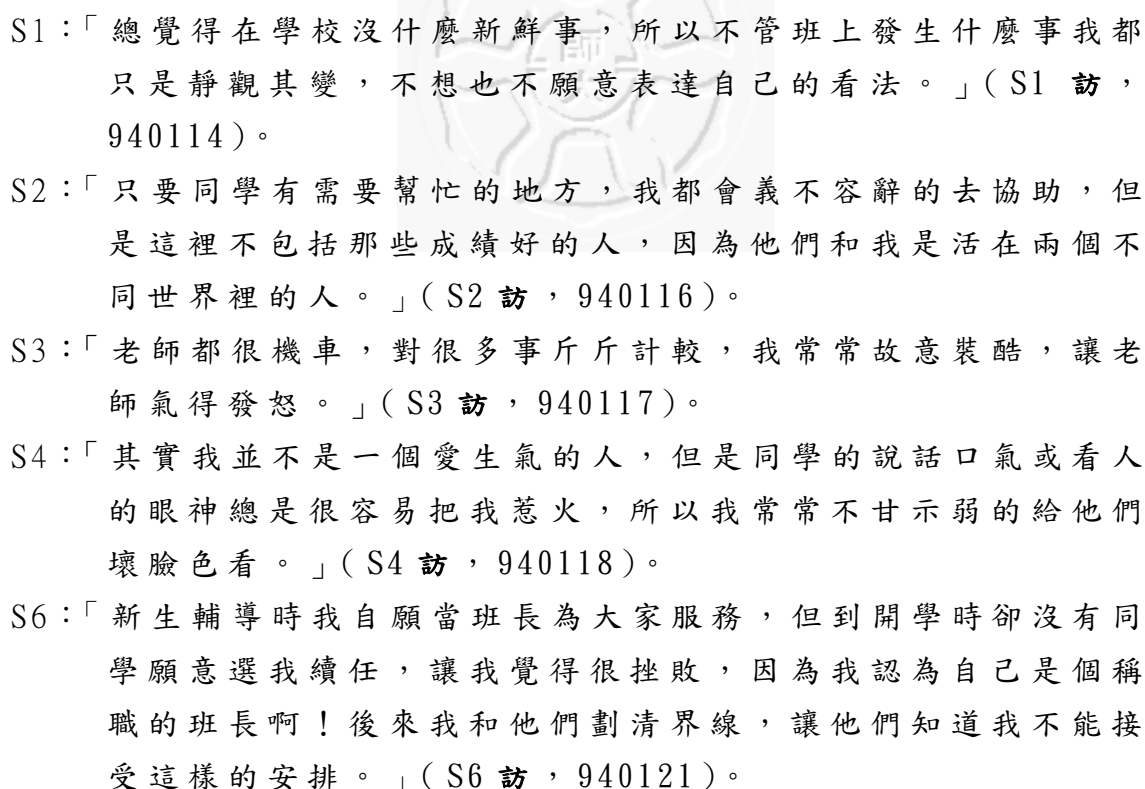 S1：「總覺得在學校沒什麼新鮮事，所以不管班上發生什麼事我都
只是靜觀其變，不想也不願意表達自己的看法。」（S1 訪，
940114）。
S2：「只要同學有需要幫忙的地方，我都會義不容辭的去協助，但
是這裡不包括那些成績好的人，因為他們和我是活在兩個不
同世界裡的人。」（S2 訪，940116）。
S3：「老師都很機車，對很多事斤斤計較，我常常故意裝酷，讓老
師氣得發怒。」（S3 訪，940117）。
S4：「其實我並不是一個愛生氣的人，但是同學的說話口氣或看人
的眼神總是很容易把我惹火，所以我常常不甘示弱的給他們
壞臉色看。」（S4 訪，940118）。
S6：「新生輔導時我自願當班長為大家服務，但到開學時卻沒有同
學願意選我續任，讓我覺得很挫敗，因為我認為自己是個稱
職的班長啊！後來我和他們劃清界線，讓他們知道我不能接
受這樣的安排。」（S6 訪，940121）。